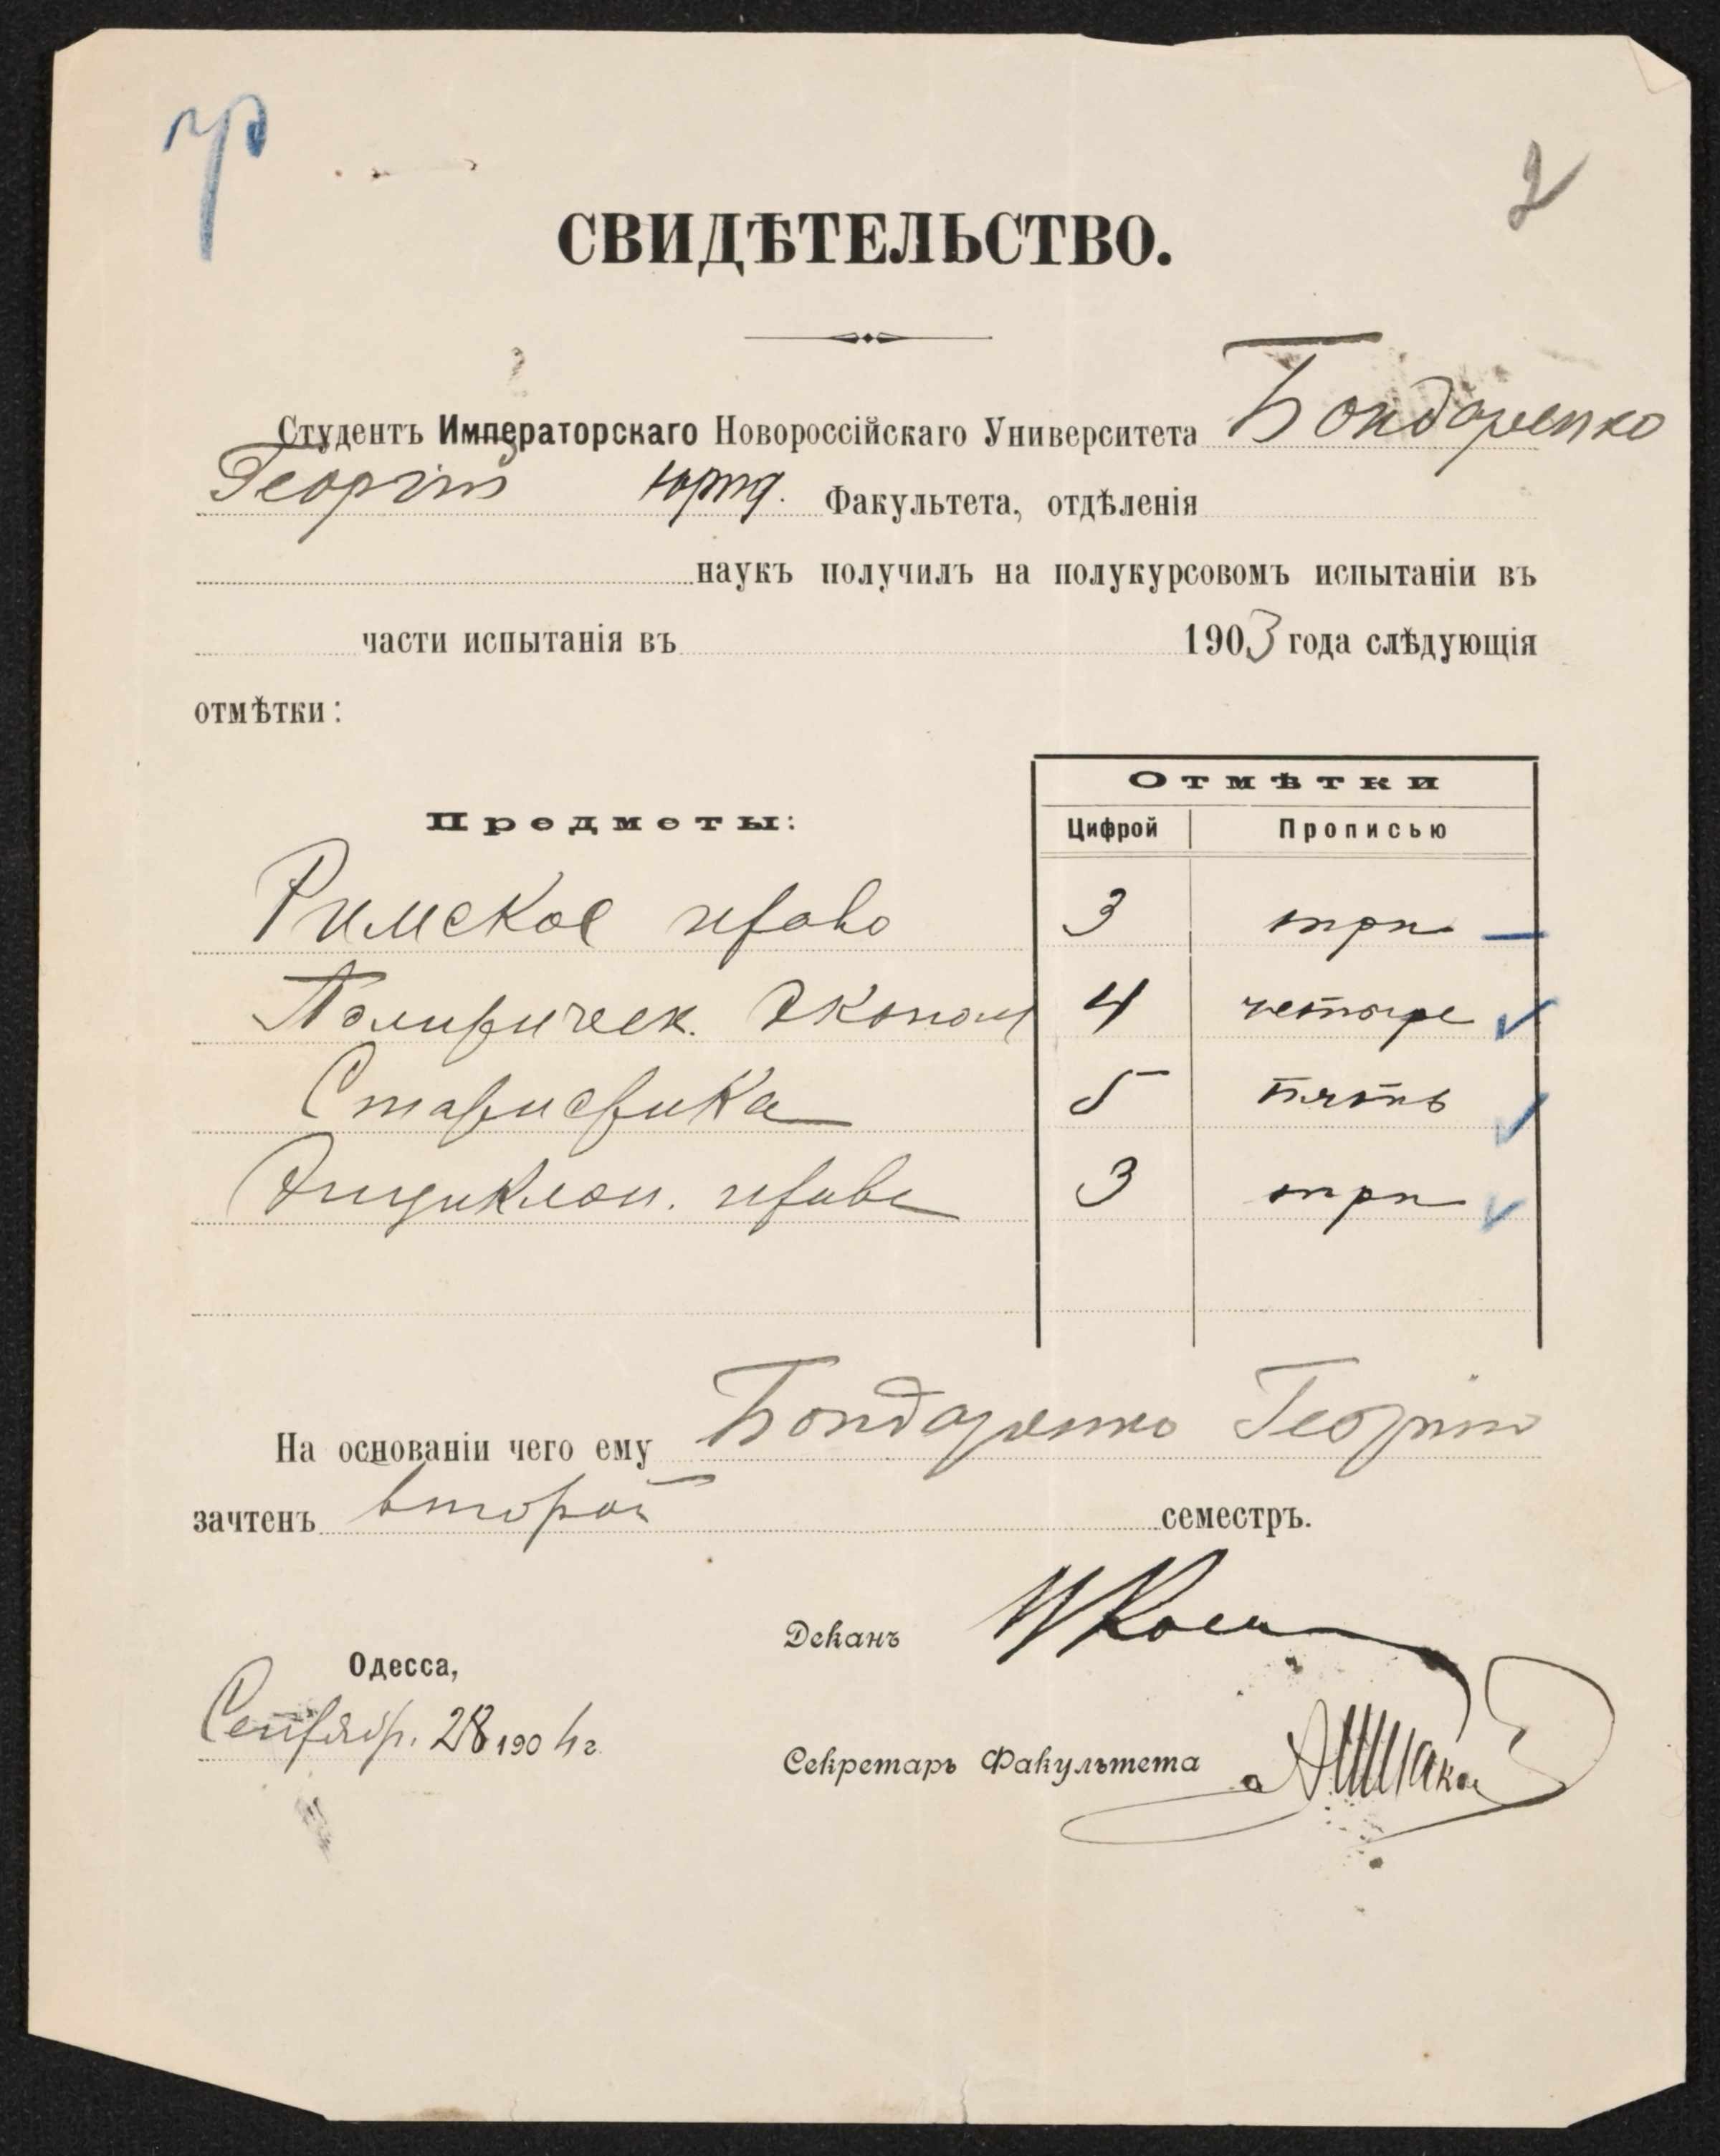 пр
2
СВИДѢТЕЛЬСТВО.
Студентъ Императорскаго Новороссійскаго Университета Бондаренко
Георгій юрид. Факультета, отдѣленія
наукъ получилъ на полукурсовомъ испытаніи въ
части испытанія въ 1903 года слѣдующія
отмѣтки:
Предметы:
Отмѣтки
Цифрой Прописью
Римское право 3 три
Политическ. Эконом 4 четыре
Статистика 5 пять
Энциклоп. права 3 три
На основаніи чего ему Бондаренко Георгію
зачтенъ второй семестръ.
Деканъ
Одесса,
Сентябр. 28 1904 г.
Секретарь Факультета